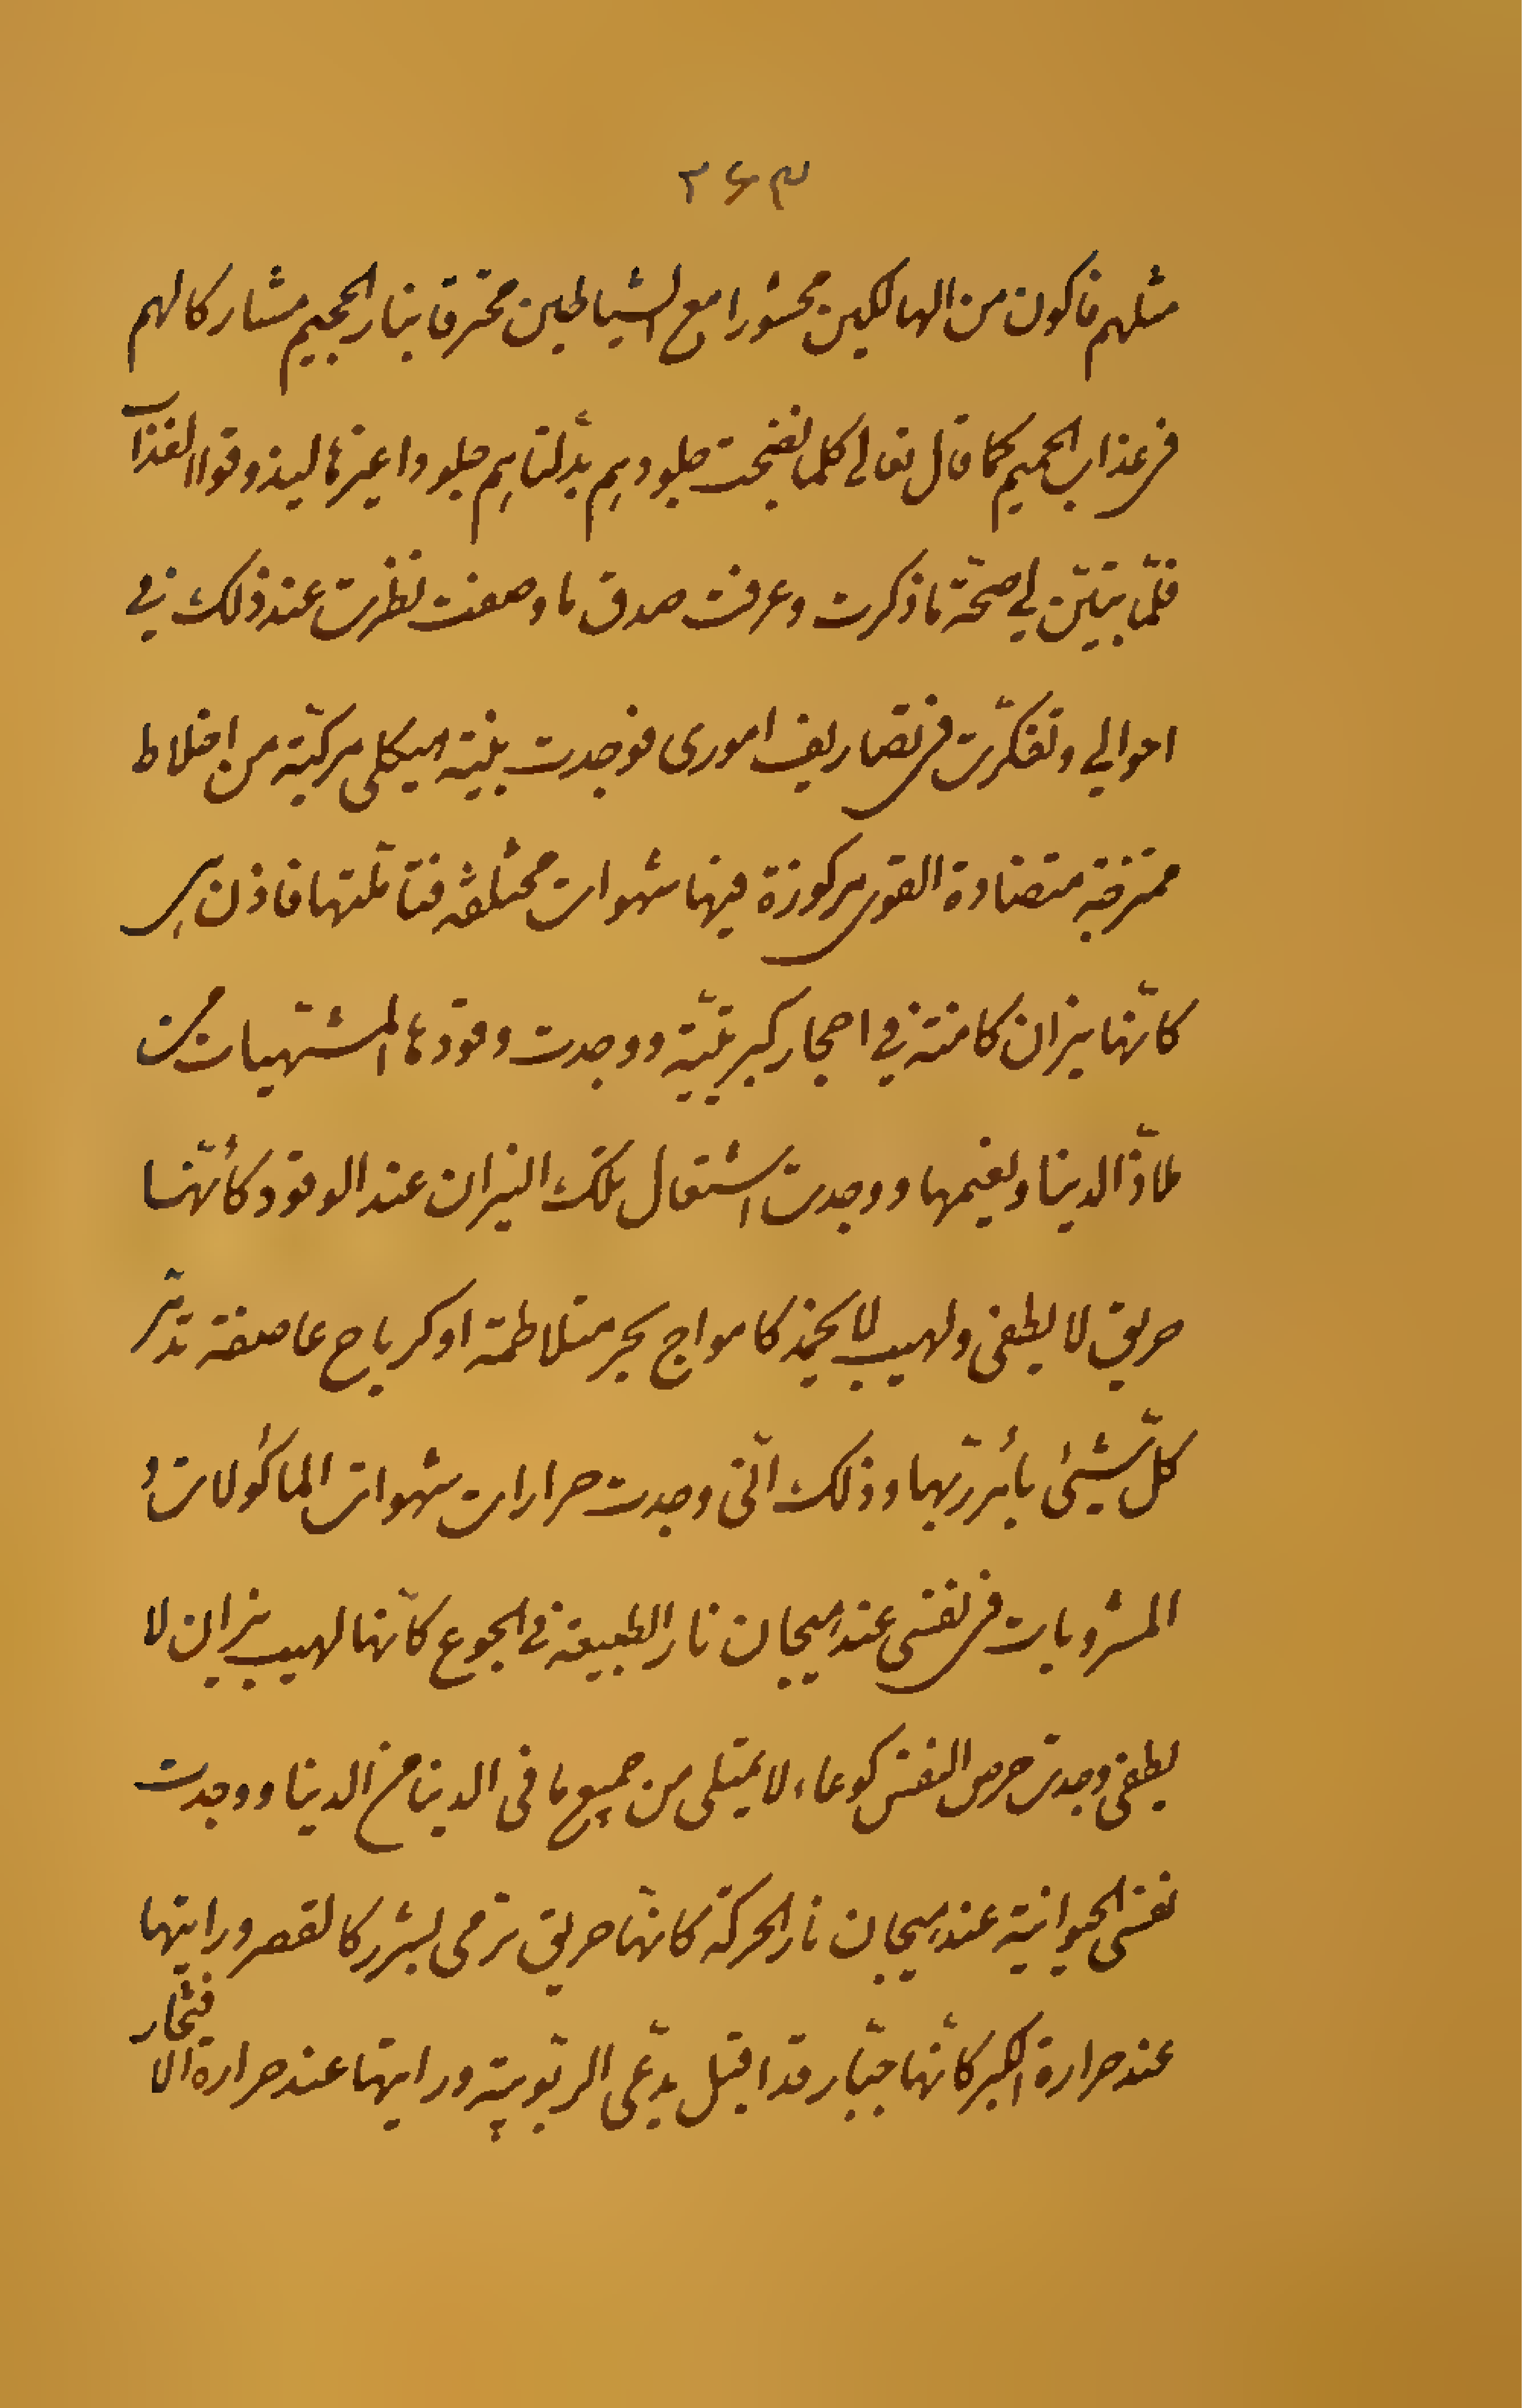 ۲۶۳
مثلهم فاکون من الهالکین محشورا مع الشیاطین محترقا بنار الجحیم مشارکا لهم
فی عذاب الحمیم کما قال تعالی کلما نضجت جلودهم بدّلناهم جلودا غیرها لیذوقوا العذاب
فلمّا تبیّن لی صحّة ما ذکرت و عرفت صدق ما وصفت نظرت عند ذلک فی
احوالی و تفکّرت فی تصاریف اموری فوجدت بنیة هیکلی مرکّبة من اخلاط
ممتزجة متضادة القوی مرکوزة فیها شهوات مختلفة فتأمّلتها فاذن هی
کانّها نیزان کامنة فی احجار کبریتیّة و وجدت وقودها المشتهیات من
ملاذّ الدنیا و نعیمها و وجدت اشتعال تلک النیران عند الوقود کأنّها
حریق لا یطفی و لهیب لا یخمد کامواج بحر متلاطمة او کریاح عاصفة تدمّر
کلّ شیئ بأمر ربّها و ذلک انّنی وجدت حرارات شهوات المأکولات و
المشروبات فی نفسی عند هیجان نار الطبیعة فی الجوع کانّها لهیب نیران لا
یطفی وجدت حرص النفس کوعاء لا یمتلی من جمیع ما فی الدنیا من الدنیا و وجدت
نفسی الحیوانیة عند هیجان نار الحرکة کانّها حریق ترمی بشرر کالقصر و رایتها
عند حرارة الکبر کانّها جبّار قد اقبل یدّعی الربّوبیّة و رایتها عند حرارة الافتخار